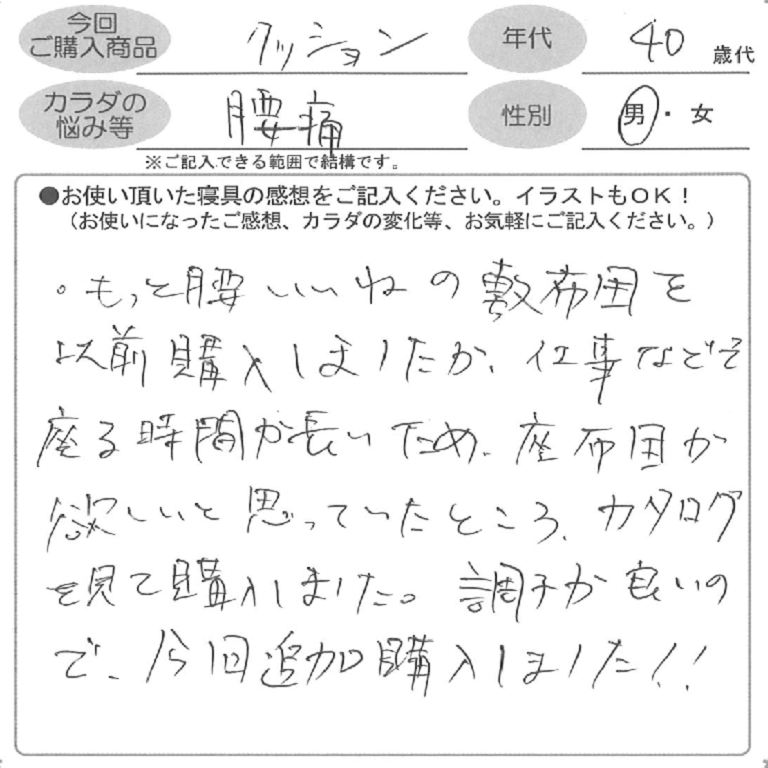 今回
ご購入商品
クッション
年代
40 歳代
カラダの
悩み等
腰痛
性別
男・女
※ご記入できる範囲で結構です。
●お使い頂いた寝具の感想をご記入ください。イラストもOK!
(お使いになったご感想、カラダの変化等、お気軽にご記入ください。)
。もっと腰いいねの敷布団を
以前購入しましたが、仕事などで
座る時間が長いため、座布団が
欲しいと思っていたところ、カタログ
を見て購入しました。調子が良いの
で、今回追加購入しました!!